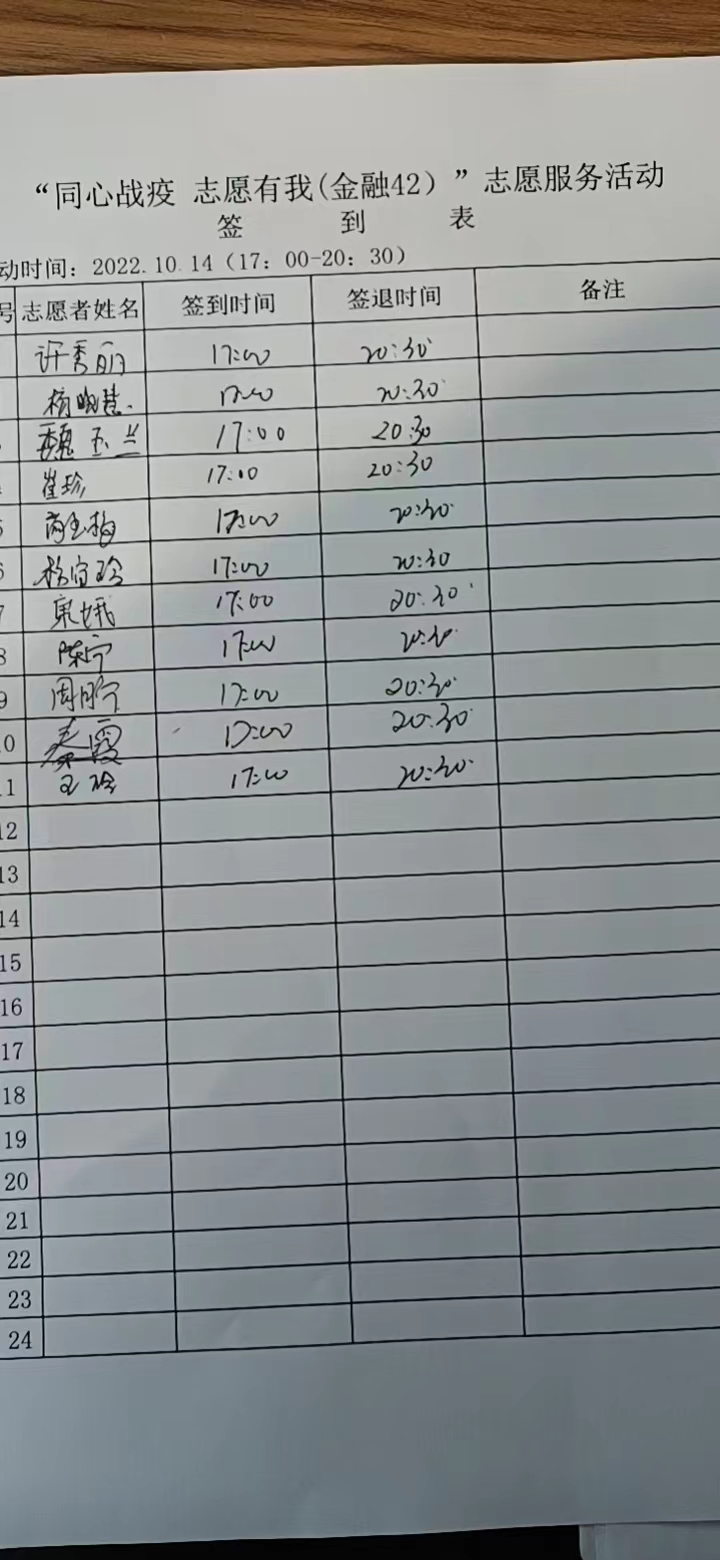 “同心战疫 志愿有我(金融42）”志愿服务活动
签 到 表
动时间：2022.10.14（17：00-20：30）
号 志愿者姓名 签到时间 签退时间 备注
许秀丽 17:00 20:30
杨晓慧 17:00 20:30
魏玉兰 17:00 20:30
崔珍 17:00 20:30
5 17:00 20:30
6 17:00 20:30
7 17:00 20:30
8 陈宁 17:00 20:30
9 周月宁 17:00 20:30
10 秦霞 17:00 20:30
11 王玲 17:00 20:30
12
13
14
15
16
17
18
19
20
21
22
23
24